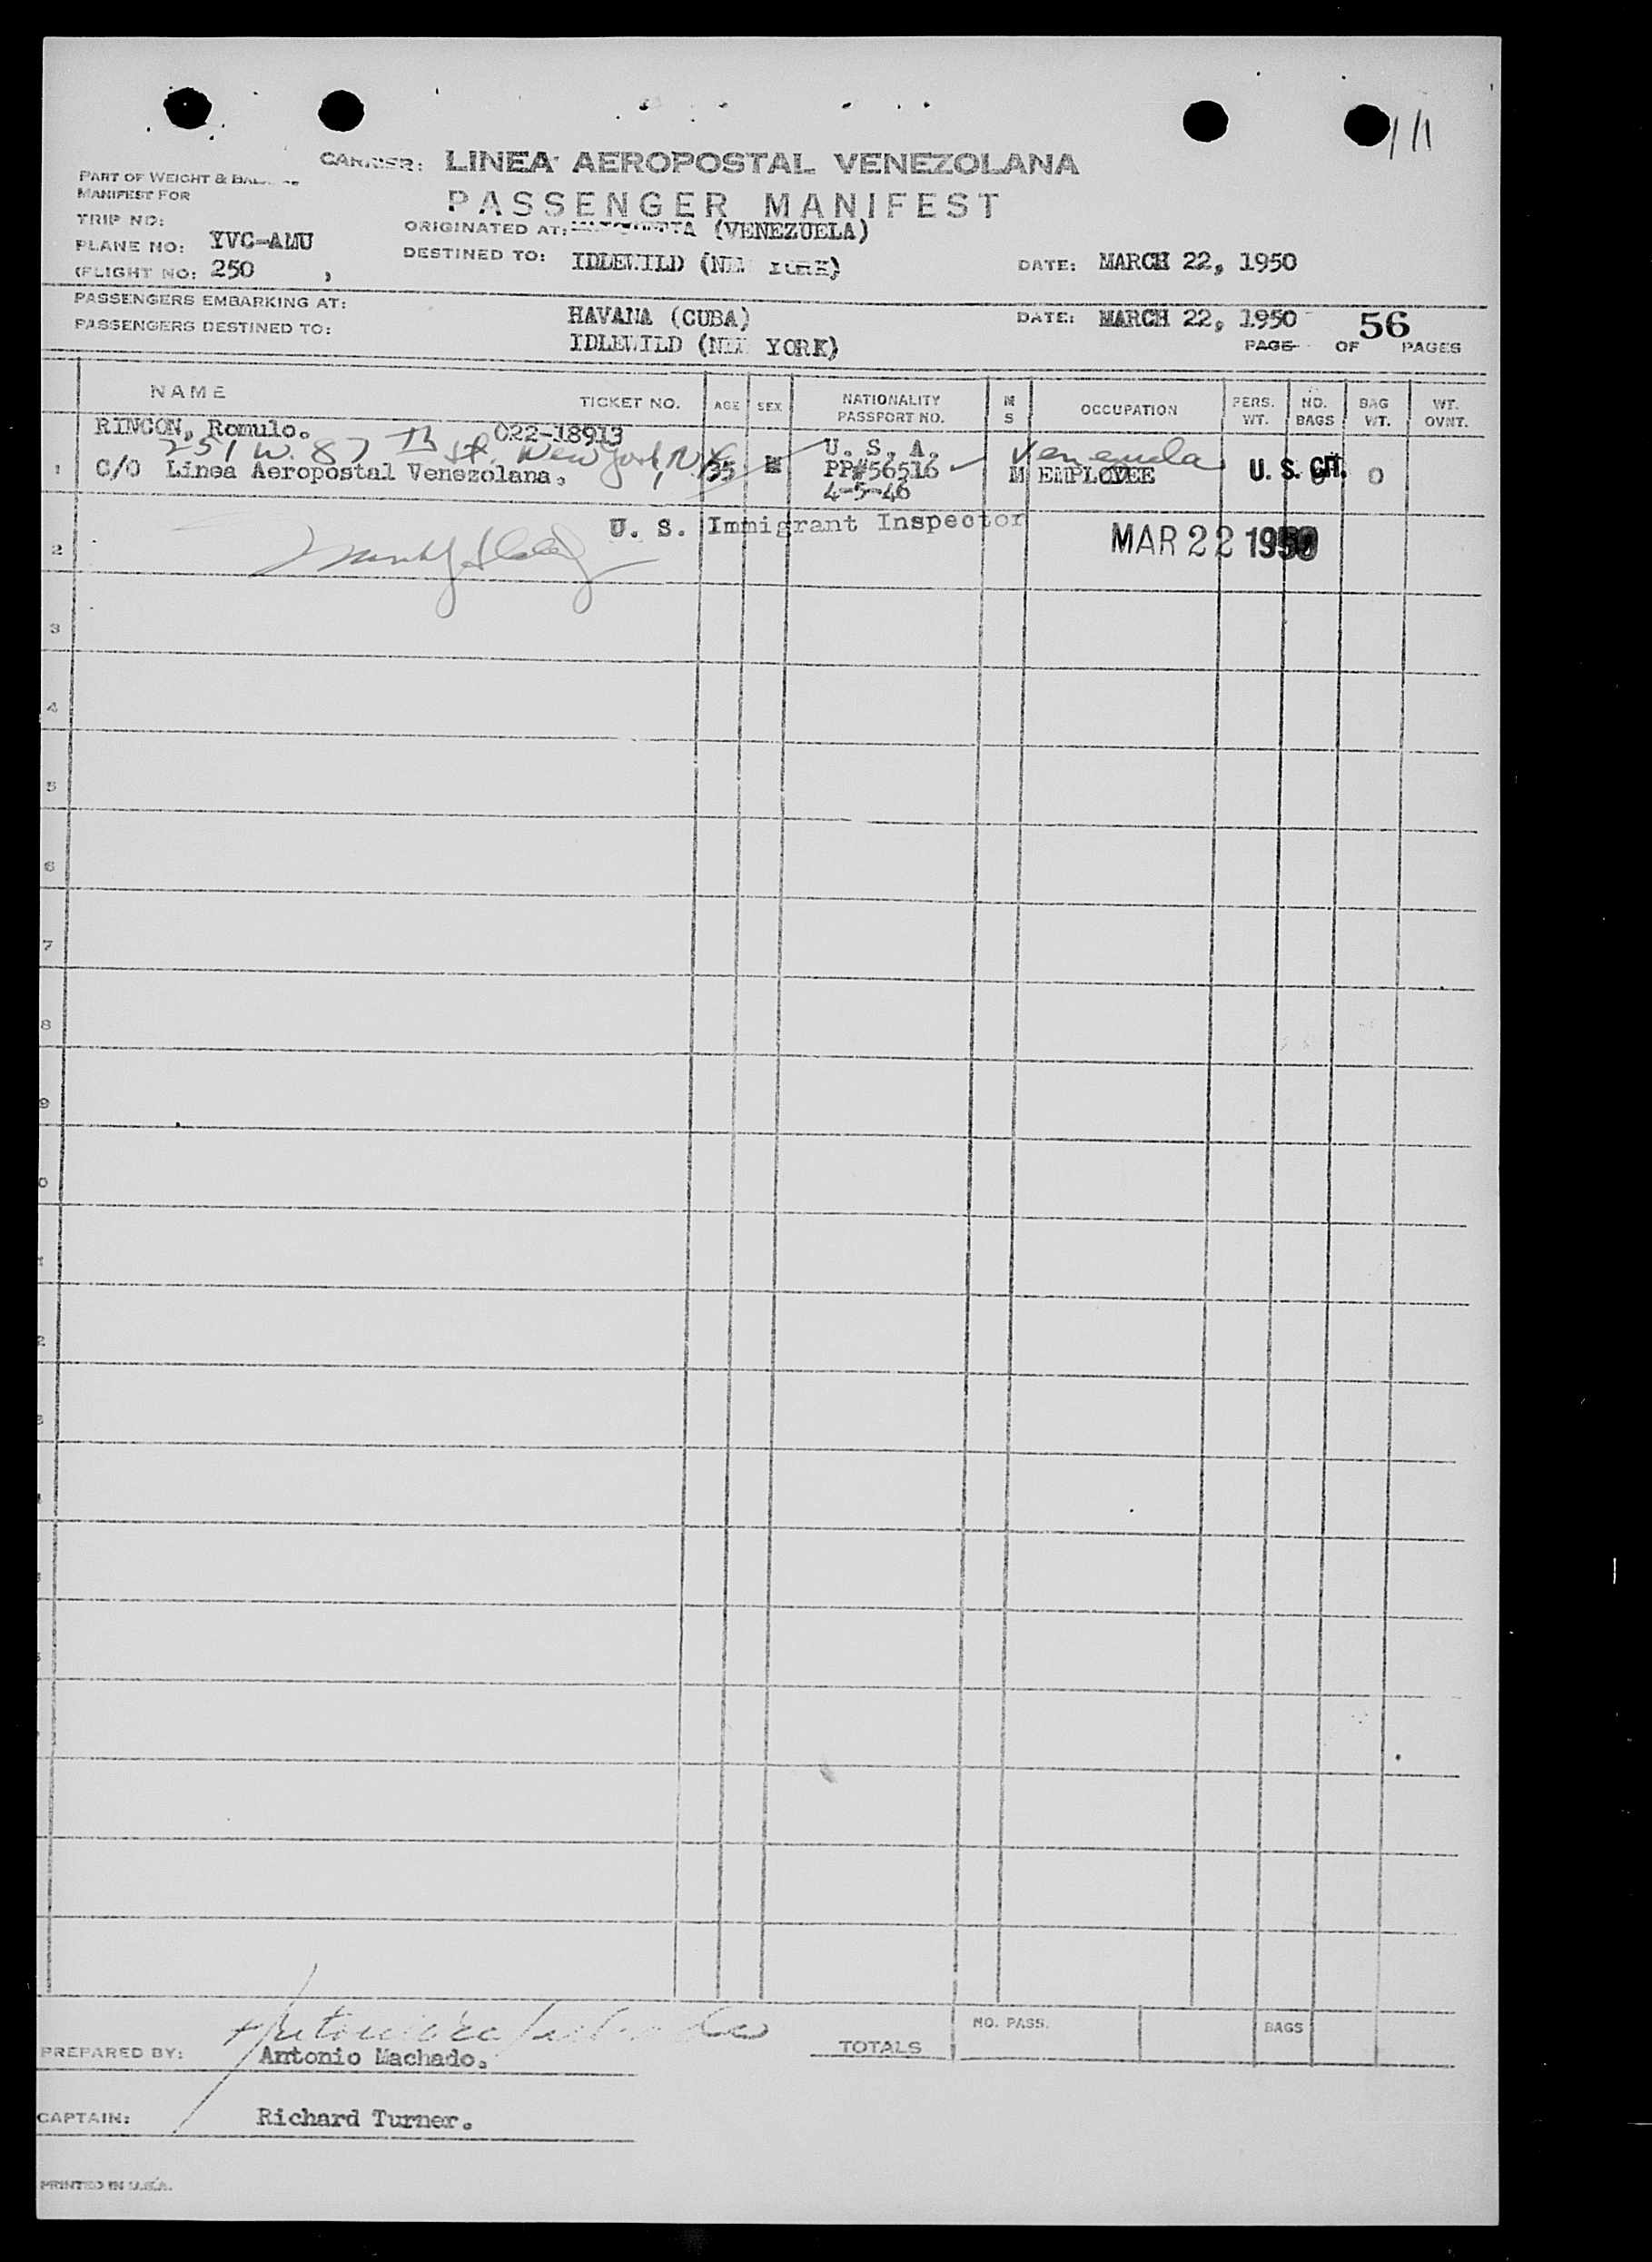 1/1
CARRIER: LINEA AEROPOSTAL VENEZOLANA
PART OF WEIGHT &
MANIFEST FOR
PASSENGER MANIFEST
TRIP NO:
ORIGINATED AT: (VENEZUELA)
PLANE NO: YVC-AMU
DESTINED TO: IDLEWILD (NEW YORK)
DATE: MARCH 22, 1950
(FLIGHT NO: 250 ,
PASSENGERS EMBARKING AT: HAVANA (CUBA)
DATE: MARCH 22, 1950
56
PASSENGERS DESTINED TO: IDLEWILD (NEW YORK)
PAGE OF PAGES
NAME TICKET NO. AGE SEX NATIONALITY PASSPORT NO. M S OCCUPATION PERS. WT. NO. BAGS BAG WT. WT. OVNT.
RINCON, Romulo. 022-18913
251 W. 87 Th St. New York, N.Y. U. S. A. Venezuela
1 C/O Linea Aeropostal Venezolana. 35 M PP#56516 M EMPLOYEE U. S. CIT. 0
4-5-46
U. S. Immigrant Inspector
2 MAR 22 1950
3
4
5
6
7
8
9
0
2
NO. PASS. BAGS
TOTALS
PREPARED BY: Antonio Machado.
CAPTAIN: Richard Turner.
PRINTED IN U.S.A.